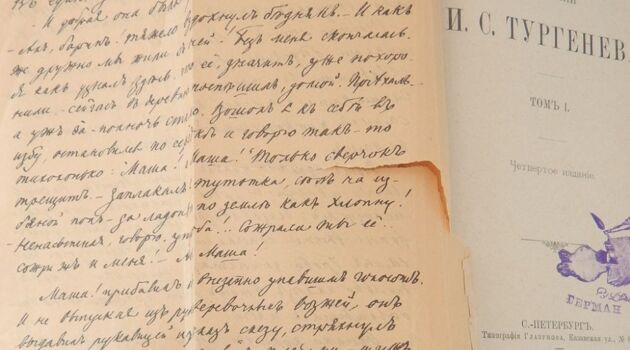 И добрая она бы вздохнулъ бѣднякъ. — И какъ
— Ахъ, баринъ! тяжело ней! Безъ меня скончалась.
же дружно мы жили с
Я какъ узналъ здѣсь, что ее, значитъ, уже похоро-
нили — сейчасъ в деревню поспѣшилъ, домой. Пріѣхалъ —
а ужъ за-полночь ста Вошолъ я къ себѣ въ
избу, остановился по сер и говорю такъ-то
тихохонько: „Маша! Маша!“ Только сверчок
трещитъ — Заплакалъ тутотка, сѣлъ на из-
бяной полъ — да ладон по землѣ какъ хлопну!
Ненасытная, говорю, ут ба!.. Сожрала ты ее..
сожри жъ и меня! — Маша!
Маша! прибавилъ внезапно упавшимъ голосомъ.
И не выпуская изъ рук веревочныхъ возжей, онъ
выдавилъ рукавицей из глазъ слезу, стряхнулъ
И. С. ТУРГЕНЕВ
ТОМЪ I.
Четвертое изданіе.
ГЕРМАН
С.-ПЕТЕРБУРГЪ.
Типографія Глазунова, Казанская ул., №